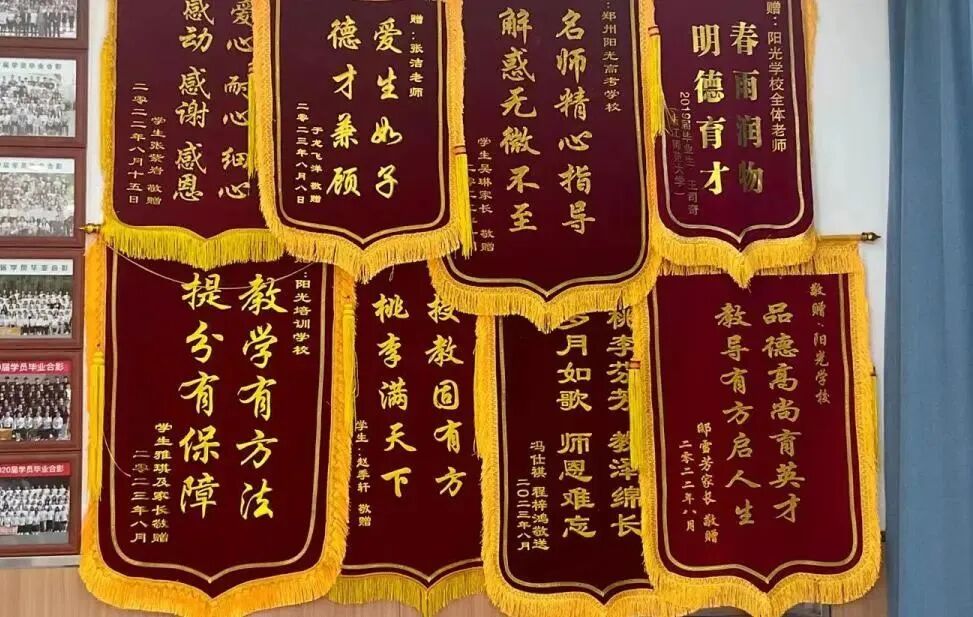 爱心 耐心 细心
感动 感谢 感恩
学生张紫岩敬赠
二〇二二年八月十五日
赠:张洁老师
爱生如子
德才兼顾
于龙飞洋 敬赠
二〇二三年八月八日
:郑州阳光高考学校
名师精心指导
解惑无微不至
学生吴琳家长 敬赠
赠:阳光学校全体老师
春雨润物
明德育才
2019届毕业生:王司奇
:阳光培训学校
教学有方法
提分有保障
学生雅琪及家长敬赠
二〇二三年八月
授教固有方
桃李满天下
学生:赵季轩 敬赠
桃李芬芳 教泽绵长
岁月如歌 师恩难忘
冯仕祺 程梓鸿敬送
二〇二三年八月
敬赠:阳光学校
品德高尚育英才
教导有方启人生
邸雪芳家长 敬赠
二零二二年八月
届学员毕业合影
2020届学员毕业合影